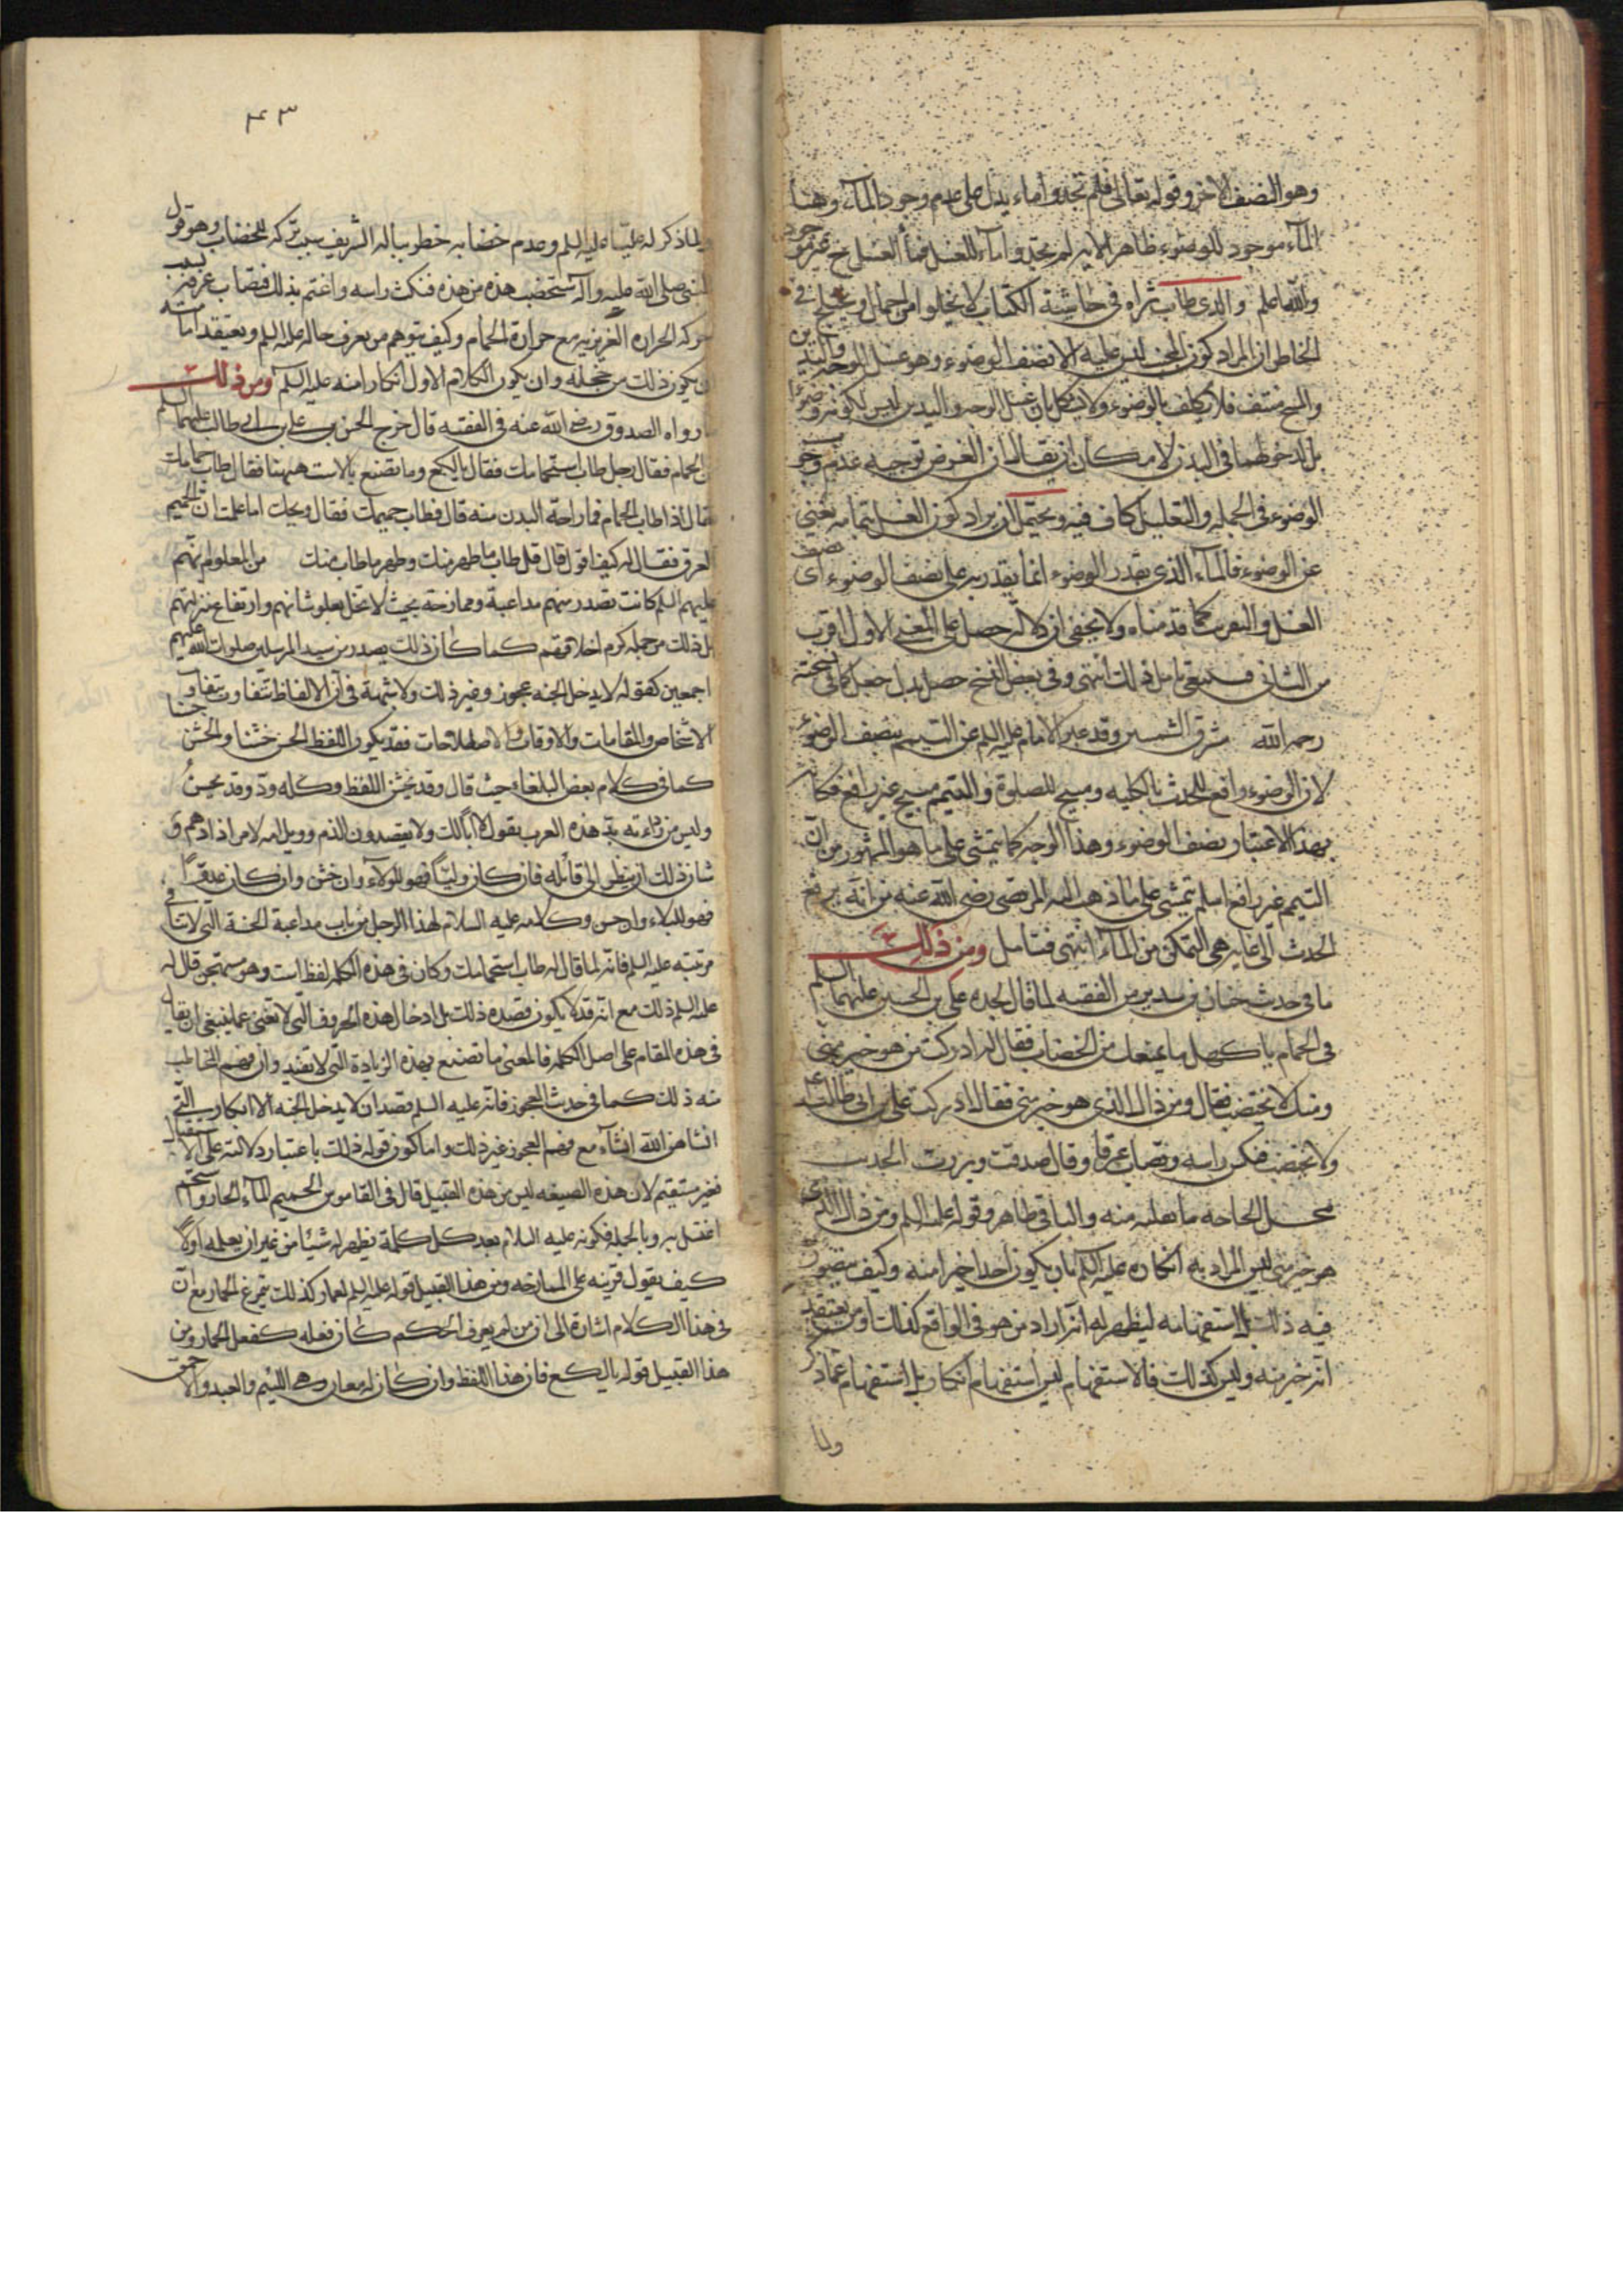 وهو النصف الاخر وقوله تعالى فلم تجدوا ماء يدل على عدم وجود الماء وهنا
الماء موجود للوضوء ظاهر الاية لم تجدوا ماء للغسل فماء الغسل ح غير موجود
والله اعلم والدى طاب ثراه فى حاشية الكتاب لا يخلوا من اجمال ويختلج فى
الخاطر ان المراد كون الجنب ليس عليه الا نصف الوضوء وهو غسل الوجه واليدين
والمسح منتف فلا يكلف بالوضوء ولا يشكل بان غسل الوجه واليدين ليس لكونه وضوءا
بل لدخولهما فى البدن لامكان ان يقال ان الغرض توجيه عدم وجوب
الوضوء فى الجملة والتعليل كاف فيه ويحتمل ان يراد كون الغسل بتمامه يغنى
عن الوضوء فالماء الذى بقدر الوضوء انما يقدر به على نصف الوضوء اى نصف
الغسل والتعريف كما قدمناه ولا يخفى ان دلالة حصل على المعنى الاول اقرب
من الثانى فينبغى تامل ذلك انتهى وفى بعض النسخ حصل بدل جعل كما فى نسخته
رحمه الله مشرق الشمسين وقد عبر الامام عليه السلم عن التيمم بنصف الوضوء
لان الوضوء رافع للحدث بالكلية ومبيح للصلوة والتيمم مبيح غير رافع فكانه
بهذا الاعتبار نصف الوضوء وهذا الوجه كما يتمشى على ما هو المشهور من ان
التيمم غير رافع اصلا يتمشى على ما ذهب اليه المرتضى رضى الله عنه من انه يرفع
الحدث الى غاية هى التمكن من الماء انتهى فتامل ومن ذلك
ما فى حديث حنان بن سدير من الفقيه لما قال لجده على بن الحسين عليهما السلم
فى الحمام يا كهل ما يمنعك من الخضاب فقال له ادركت من هو خير منى
ومنك لا يختضب فقال ومن ذاك الذى هو خير منى فقال ادركت على بن ابى طالب ع
ولا يختضب فنكس راسه وتصاب عرقا وقال صدقت وبررت الحديث
محل الحاجة ما نقلته منه والباقى ظاهر وقوله عليه السلم ومن ذاك الذى
هو خير منى ليس المراد به انكاره عليه السلم بان يكون احدا خيرا منه وكيف يتصور
فيه ذلك بل استفهامه ليظهر له انه اراد من هو فى الواقع كذلك او من يعتقد
انه خير منه وليس كذلك فالاستفهام ليس استفهام انكار بل استفهام عما ذكر
ولما
٤٣
ولما ذكر له عليا عليه السلم وعدم خضابه خطر بباله الشريف سبب تركه للخضاب وهو قول
النبى صلى الله عليه وآله ستخضب هذه من هذه فنكس راسه واغتم بذلك فتصاب عرقه بسبب
حركة الحرارة الغريزية مع حرارة الحمام وكيف يتوهم من يعرف حاله عليه السلم ويعتقد امامته
ان يكون ذلك من خجله وان يكون الكلام الاول انكارا منه عليه السلم ومن ذلك
ما رواه الصدوق رضى الله عنه فى الفقيه قال خرج الحسن بن على بن ابى طالب عليهما السلم
من الحمام فقال رجل طاب استحمامك فقال يا لكع وما تصنع بالاست ههنا فقال طاب حمامك
فقال اذا طاب الحمام فما راحة البدن منه قال فطاب حميمك فقال ويحك اما علمت ان الحميم
العرق فقال له كيف اقول قال قل طاب ما طهر منك وطهر ما طاب منك من المعلوم انهم
عليهم السلم كانت تصدر منهم مداعبة وممازحة بحيث لا تخل بعلو شانهم وارتفاع منزلتهم
بل ذلك من جملة كرم اخلاقهم كما كان ذلك يصدر من سيد المرسلين صلوات الله عليهم
اجمعين كقوله لا يدخل الجنة عجوز وغير ذلك ولا شبهة فى ان الالفاظ تتفاوت بتفاوت
الاشخاص والمقامات والاوقات والاصطلاحات فقد يكون اللفظ الحسن خشنا والخشن حسنا
كما فى كلام بعض البلغاء حيث قال وقد يخشن اللفظ وكله ود وقد يحسن
وليس من ورائه بد هذه العرب يقول لا ابا لك ولا يقصدون الذم وويل امه لامر اذا دهم و
شان ذلك ان ينظر الى قائله فان كان وليا فهو للولاء وان خشن وان كان عدوا
فهو للبلاء وان حسن وكلامه عليه السلام لهذا الرجل من باب مداعبة الحسنة التى لا تنافى
مرتبته عليه السلم فانه لما قال له طاب استحمامك وكان فى هذه الكلمة لفظ است وهو مستهجن قال له
عليه السلم ذلك مع انه قد لا يكون قصده ذلك بل ادخال هذه الحروف التى لا تغنى عما ينبغى ان يقال
فى هذه المقام على اصل الكلمة فالمعنى ما تصنع بهذه الزيادة التى لا تفيد وان فهم المخاطب
منه ذلك كما فى حديث العجوز فانه عليه السلم قصد ان لا يدخل الجنة الا ابكار التى
انشاهن الله انشاء مع فهم العجوز غير ذلك واما كون قوله ذلك باعتبار دلالته على الاستقبال
فغير مستقيم لان هذه الصيغة ليس من هذه القبيل قال فى القاموس الحميم الماء الحار واستحم
اغتسل به وبالجملة فكونه عليه السلام بعد كل كلمة يظهر له شيئا من غير ان يعلمه اولا
كيف يقول قرينة على الممازحة ومن هذا القبيل قوله عليه السلم لعمار كذلك يتمرغ الحمار مع ان
فى هذا الكلام اشارة الى ان من لم يعرف الحكم كان فعله كفعل الحمار ومن
هذا القبيل قوله يا لكع فان هذا اللفظ وان كان له معان وهى اللئيم والعبد والاحمق